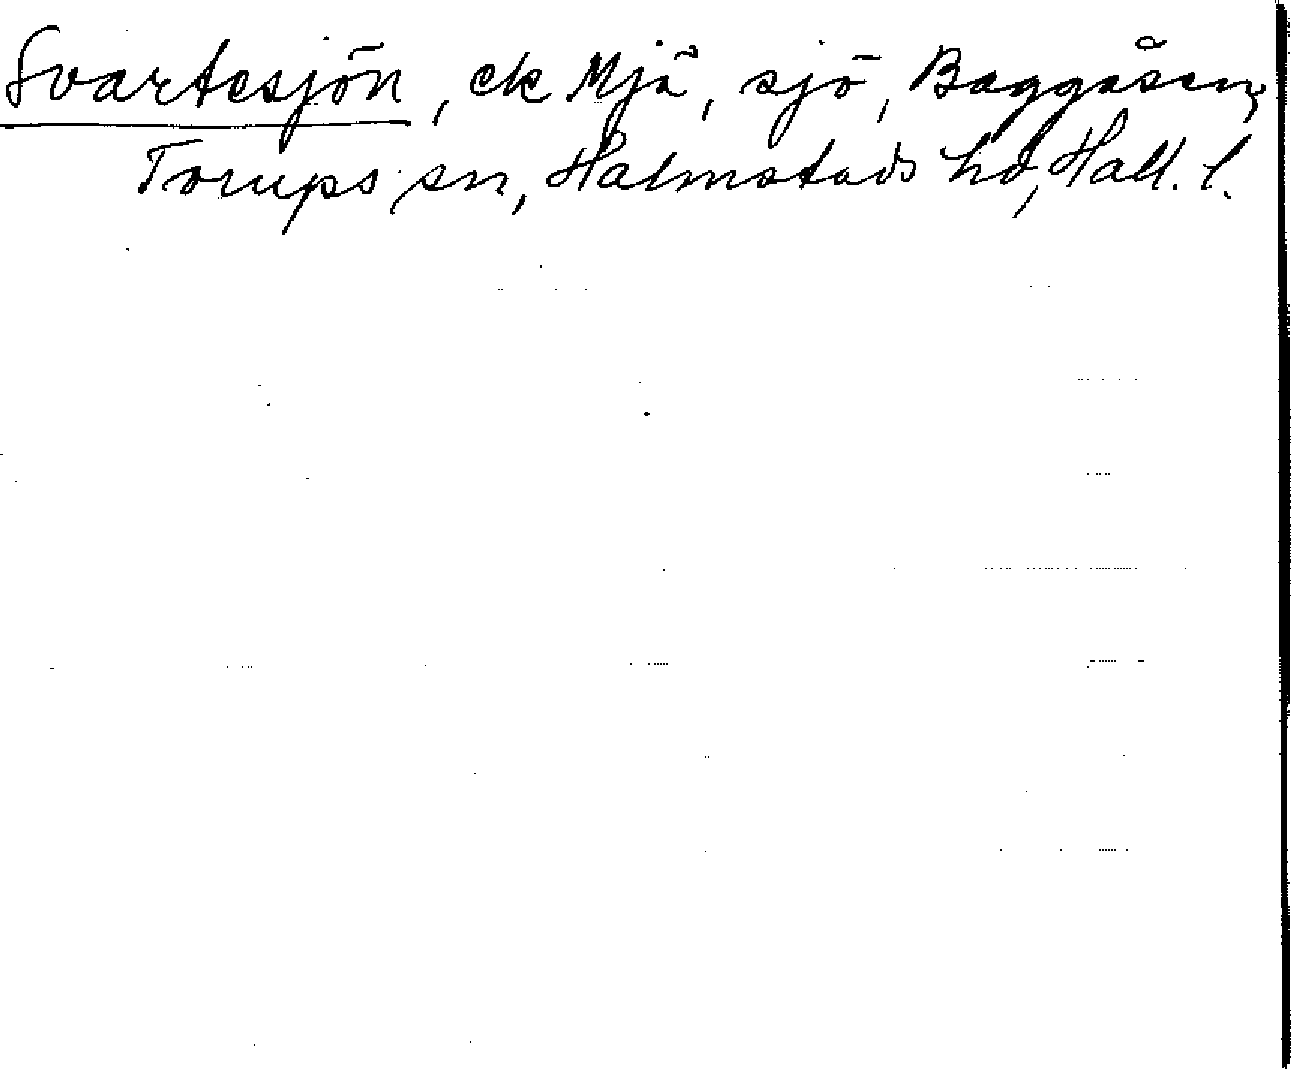 Svartesjön, ek Mjä, sjö, Baggåsen,
Torups sn, Halmstads hd, Hall. l.